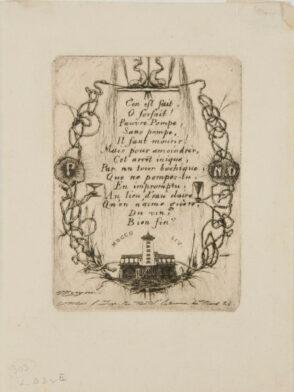 C'en est fait,
O forfait!
Pauvre Pompe,
Sans pompe,
Il faut mourir!
Mais pour amoindrir,
Cet arrêt inique,
Par un tour bachique,
Que ne pompes-tu,
P
N.D
En impromptu,
Au lieu d'eau claire
Qu'on n'aime guère!
Du vin?
Bien fin?
MDCCC LIV